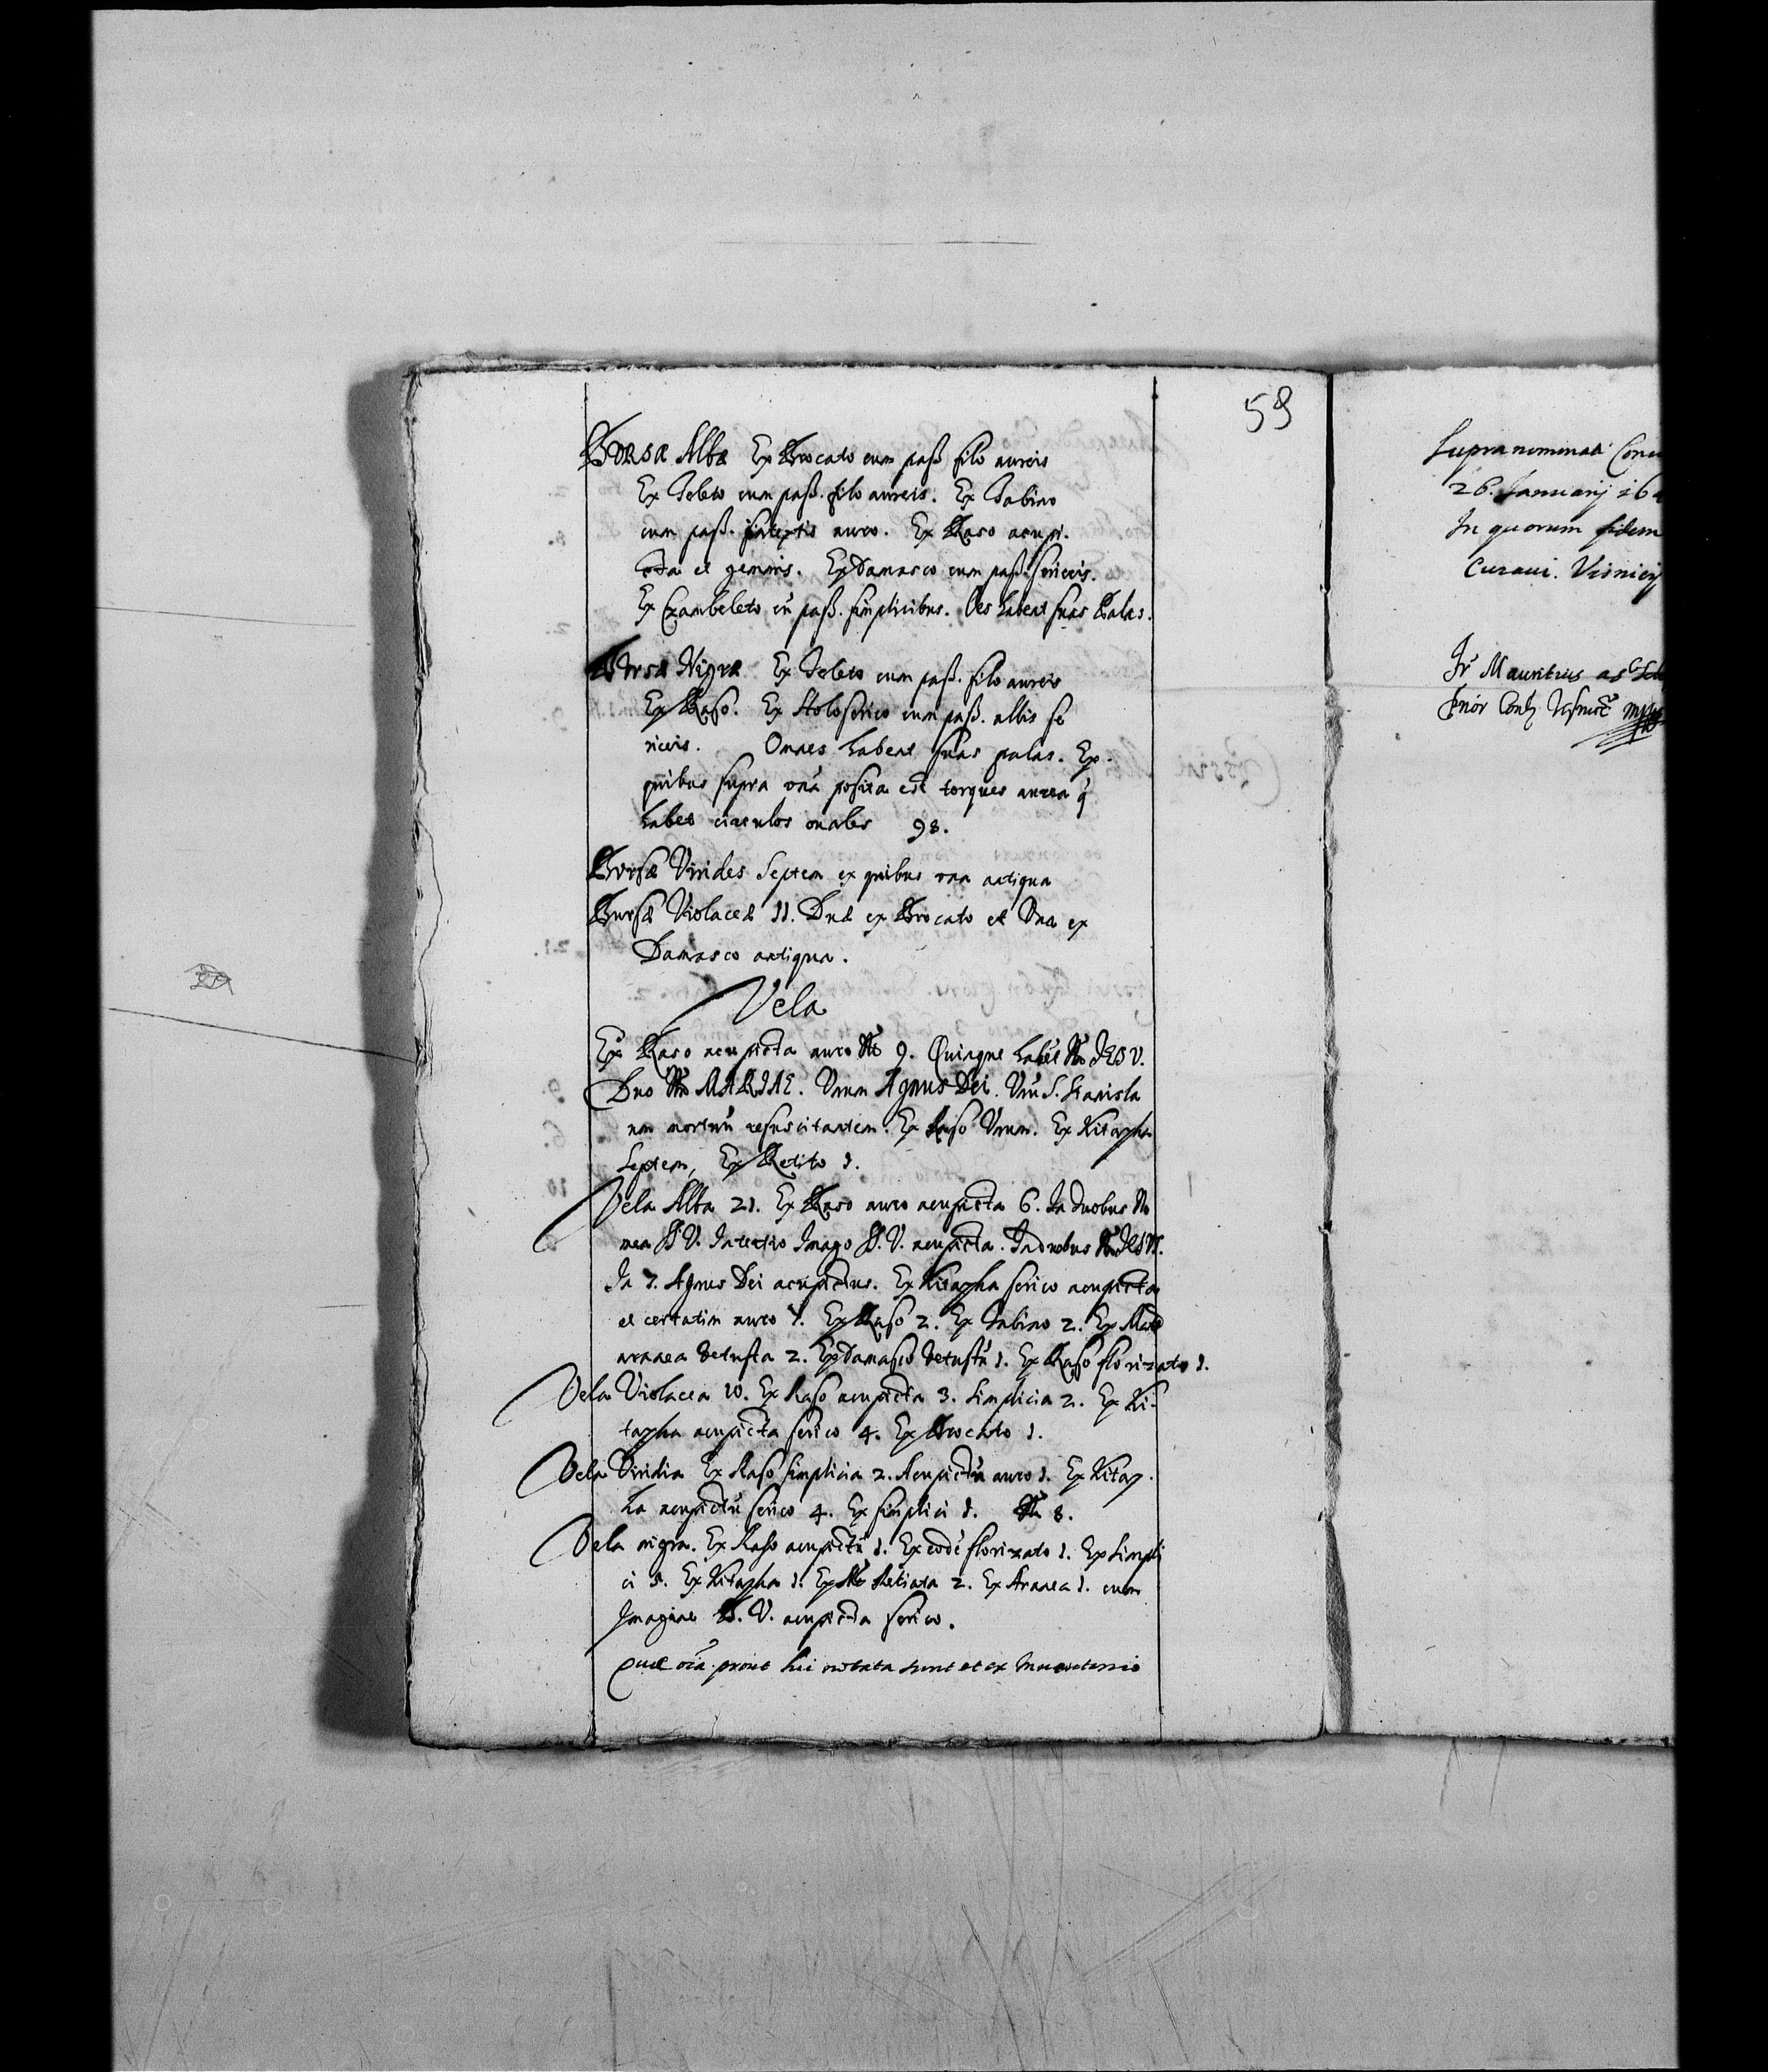 59
Bursæ Albæ Ex Brocato cum paß filo aureis
Ex Teleto cum paß. filo aureis. Ex Tabino
cum paß. intextis auro. Ex Raso acupi.
cta et gemmis. Ex Damasco cum paß. sericeis.
Ex Czambeleto cũ paß. simplicibus. Oẽs habent suas Palas.
Bursæ Nigræ Ex Teleto cum paß. filo aureis
Ex Raso. Ex Holoserico cum paß. albis se
riceis. Omnes habent suas palas. Ex
quibus supra unã posita est torques aurea q̃
habet circulos ovales 98.
Bursæ Virides Septem ex quibus una antiqua
Bursæ Violaceæ 11. Duæ ex Brocato et Una ex
Damasco antiqua.
Vela
Ex Raso acupicta auro Nõ 9. Quinque habẽt Nõ JESV.
Duo Nõ MARIAE. Unum Agnus Dei. Unũ S. Stanisla
um mortuũ resuscitantem. Ex Raso Unum. Ex Kitaypha
Septem, Ex Retito 1.
Vela Alba 21. Ex Raso auro acupicta 6. In duobus No
men B. V. In tertio Imago B. V. acupicta. In duobus Nõ JESU.
In 1. Agnus Dei acupictus. Ex Kitaypha serico acupicta
et certatim auro 7. Ex Raso 2. Ex Tabino 2. Ex
aranea vetusta 2. Ex Damasco vetustũ 1. Ex Raso florizato 1.
Vela Violacea 10. Ex Raso acupicta 3. Simplicia 2. Ex Ki-
taypha acupicta serico 4. Ex Brocato 1.
Vela Viridia Ex Raso simplicia 2. Acupictũ auro 1. Ex Kitayp.
ha acupictũ serico 4. Ex simplici 1. Nõ 8.
Vela nigra. Ex Raso acupictũ 1. Ex eodẽ florizato 1. Ex simpli
ci 5. Ex Kitaypha 1. Ex Retiata 2. Ex Aranea 1. cum
Imagine B. V. acupicta serico.
Quæ oĩa prout hic notata sunt et ex Inventario
Supranominati Con
26. Januarij 16
In quorum fidem
Curavi. Visnicij
Fr Mauritius a S
Prior Conv